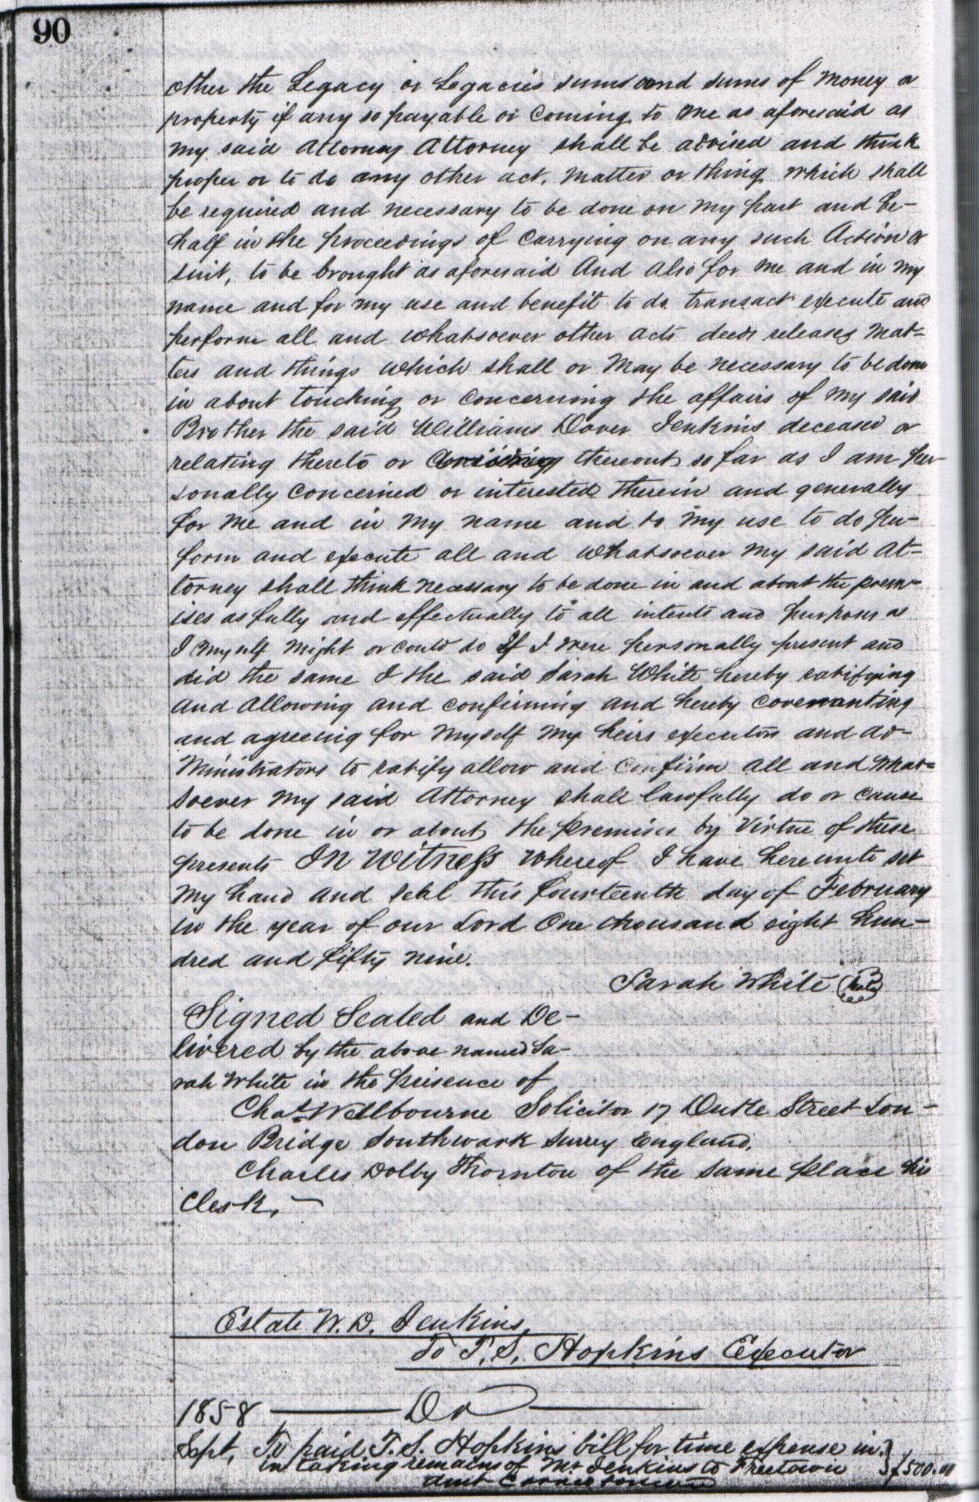 90
other the Legacy or Legacies sums and sums of money or
property if any so payable or coming to me as aforesaid as
my said Attorney Attorney shall be advised and think
proper or to do any other act, matter or thing which shall
be required and necessary to be done on my part and be-
half in the proceedings of carrying on any such Action or
suit, to be brought as aforesaid And also for me and in my
name and for my use and benefit to do transact execute and
perform all and whatsoever other acts deeds releases mat-
ters and things which shall or may be necessary to be done
in about touching or concerning the affairs of my said
Brother the said Williams Dover Jenkins deceased or
relating thereto or thereout so far as I am per-
sonally concerned or interested therein and generally
for me and in my name and to my use to do per-
form and execute all and whatsoever my said At-
torney shall think necessary to be done in and about the prem-
ises as fully and effectually to all intents and purposes as
I myself might or could do If I were personally present and
did the same I the said Sarah White hereby ratifying
and allowing and confirming and hereby covenanting
and agreeing for myself my heirs executors and ad-
ministrators to ratify allow and confirm all and what-
soever my said Attorney shall lawfully do or cause
to be done in or about the premises by Virtue of these
presents In Witness whereof I have hereunto set
my hand and seal this fourteenth day of February
in the year of our Lord One thousand eight hun-
dred and fifty nine.
Sarah White Seal
Signed Sealed and De-
livered by the above named Sa-
rah White in the presence of
Chas Wellbourne Solicitor 17 Duke Street Lon-
don Bridge Southwark Surrey England.
Charles Dolby Thornton of the same place his
Clerk,
Estate W. D. Jenkins,
To T. S. Hopkins Executor
1858 Dr
Sept, To paid T. S. Hopkins bill for time expense in
in taking remains of Mr Jenkins to Freetown } $500.00